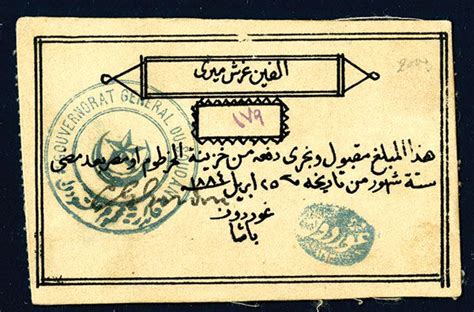 الفين غرش ميرى
2000
١٧٩
هذا المبلغ مقبول وتجرى دفعه من خزينة الخرطوم او مصر بعد مضى
ستة شهور من تاريخه ٢٥ ابريل ١٨٨٤
غوردون
باشا
GOUVERNORAT GENERAL DU SOUDAN